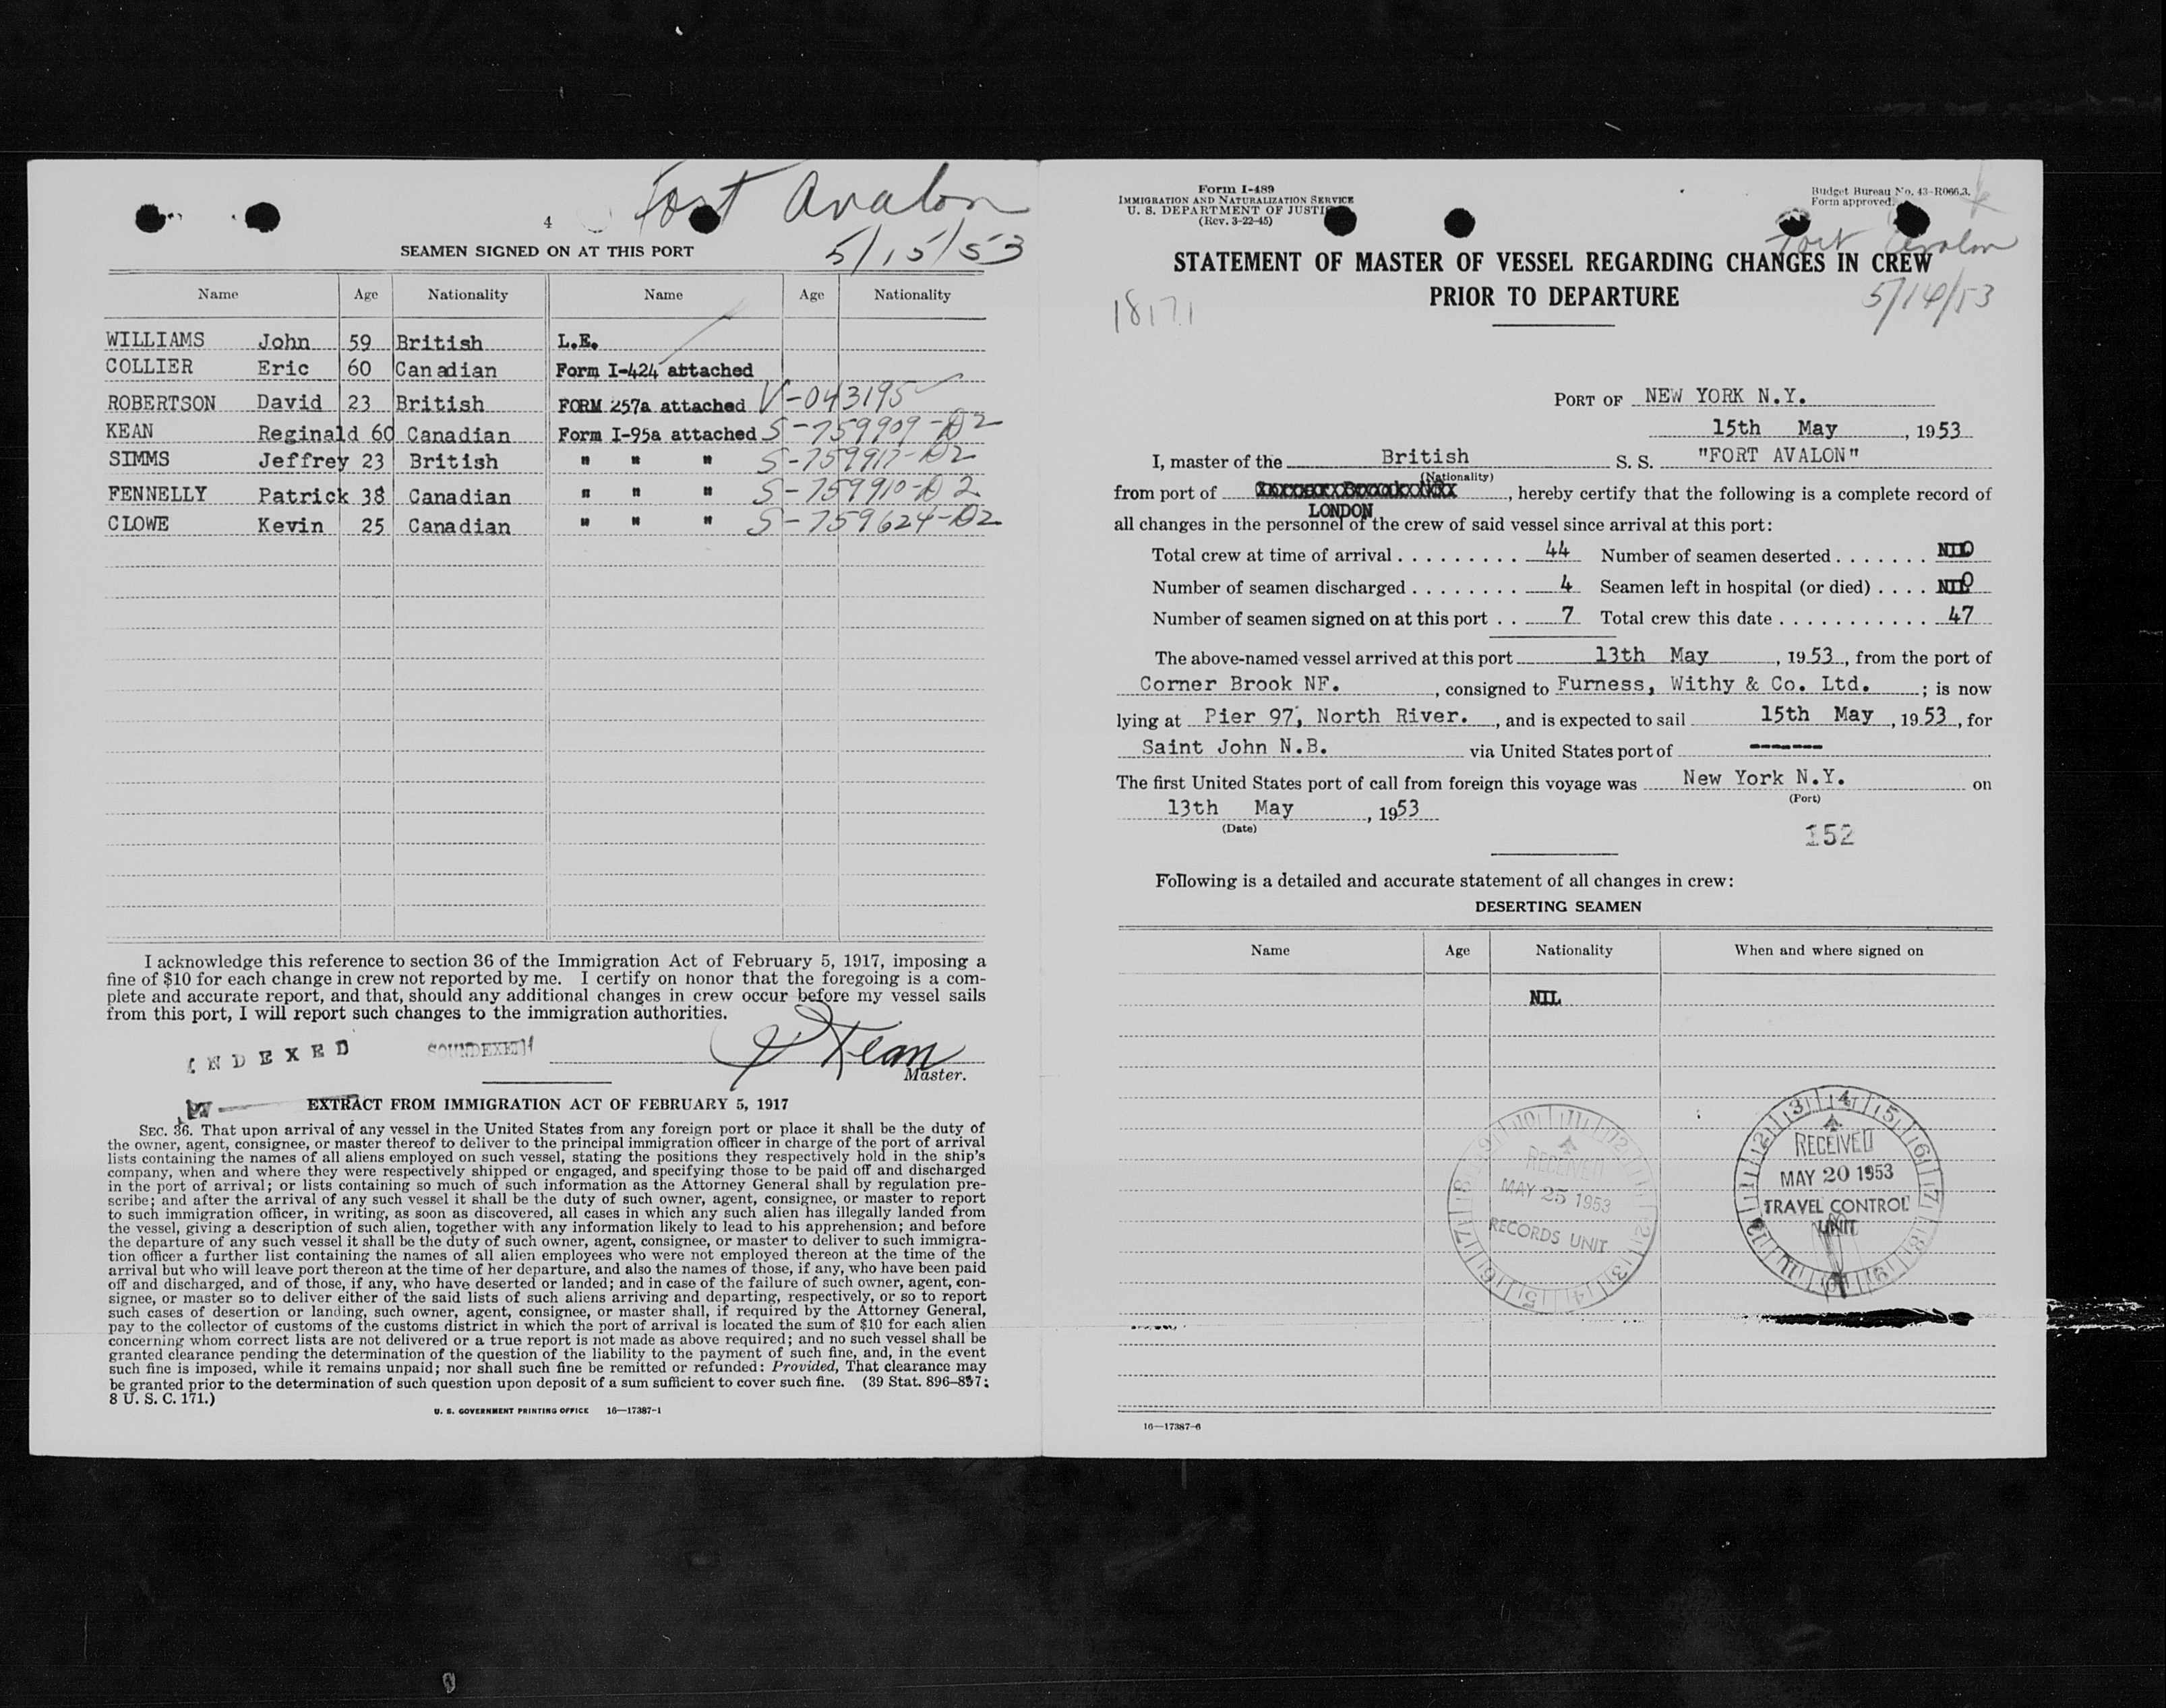 4
Fort Avalon
5/15/53
SEAMEN SIGNED ON AT THIS PORT
Name Age Nationality Name Age Nationality
WILLIAMS John 59 British L.E.
COLLIER Eric 60 Canadian Form I-424 attached
ROBERTSON David 23 British FORM 257a attached V-043195
KEAN Reginald 60 Canadian Form I-95a attached S-759909-D2
SIMMS Jeffrey 23 British " " " S-759917-D2
FENNELLY Patrick 38 Canadian " " " S-759910-D2
CLOWE Kevin 25 Canadian " " " S-759624-D2
I acknowledge this reference to section 36 of the Immigration Act of February 5, 1917, imposing a
fine of $10 for each change in crew not reported by me. I certify on honor that the foregoing is a com-
plete and accurate report, and that, should any additional changes in crew occur before my vessel sails
from this port, I will report such changes to the immigration authorities.
INDEXED SOUNDEXED
Kean
Master.
EXTRACT FROM IMMIGRATION ACT OF FEBRUARY 5, 1917
SEC. 36. That upon arrival of any vessel in the United States from any foreign port or place it shall be the duty of
the owner, agent, consignee, or master thereof to deliver to the principal immigration officer in charge of the port of arrival
lists containing the names of all aliens employed on such vessel, stating the positions they respectively hold in the ship's
company, when and where they were respectively shipped or engaged, and specifying those to be paid off and discharged
in the port of arrival; or lists containing so much of such information as the Attorney General shall by regulation pre-
scribe; and after the arrival of any such vessel it shall be the duty of such owner, agent, consignee, or master to report
to such immigration officer, in writing, as soon as discovered, all cases in which any such alien has illegally landed from
the vessel, giving a description of such alien, together with any information likely to lead to his apprehension; and before
the departure of any such vessel it shall be the duty of such owner, agent, consignee, or master to deliver to such immigra-
tion officer a further list containing the names of all alien employees who were not employed thereon at the time of the
arrival but who will leave port thereon at the time of her departure, and also the names of those, if any, who have been paid
off and discharged, and of those, if any, who have deserted or landed; and in case of the failure of such owner, agent, con-
signee, or master so to deliver either of the said lists of such aliens arriving and departing, respectively, or so to report
such cases of desertion or landing, such owner, agent, consignee, or master shall, if required by the Attorney General,
pay to the collector of customs of the customs district in which the port of arrival is located the sum of $10 for each alien
concerning whom correct lists are not delivered or a true report is not made as above required; and no such vessel shall be
granted clearance pending the determination of the question of the liability to the payment of such fine, and, in the event
such fine is imposed, while it remains unpaid; nor shall such fine be remitted or refunded: Provided, That clearance may
be granted prior to the determination of such question upon deposit of a sum sufficient to cover such fine. (39 Stat. 896–897;
8 U. S. C. 171.)
U. S. GOVERNMENT PRINTING OFFICE 16—17387-1
Form I-489
IMMIGRATION AND NATURALIZATION SERVICE
U. S. DEPARTMENT OF JUSTICE
(Rev. 3-22-45)
Budget Bureau No. 43-R066.3.
Form approved.
Fort Avalon
5/14/53
STATEMENT OF MASTER OF VESSEL REGARDING CHANGES IN CREW
PRIOR TO DEPARTURE
18171
PORT OF NEW YORK N.Y.
15th May, 1953
I, master of the British S. S. "FORT AVALON"
(Nationality)
from port of LONDON, hereby certify that the following is a complete record of
all changes in the personnel of the crew of said vessel since arrival at this port:
Total crew at time of arrival . . . . . . . . . 44 Number of seamen deserted . . . . . . . NIL 0
Number of seamen discharged . . . . . . . . 4 Seamen left in hospital (or died) . . . . NIL 0
Number of seamen signed on at this port . . 7 Total crew this date . . . . . . . . . . . 47
The above-named vessel arrived at this port 13th May, 1953, from the port of
Corner Brook NF., consigned to Furness, Withy & Co. Ltd. ; is now
lying at Pier 97, North River., and is expected to sail 15th May, 1953, for
Saint John N.B. via United States port of -------
The first United States port of call from foreign this voyage was New York N.Y. on
(Port)
13th May, 1953
(Date)
152
Following is a detailed and accurate statement of all changes in crew:
DESERTING SEAMEN
Name Age Nationality When and where signed on
NIL
RECEIVED
MAY 25 1953
RECORDS UNIT
RECEIVED
MAY 20 1953
TRAVEL CONTROL
UNIT
16—17387-6